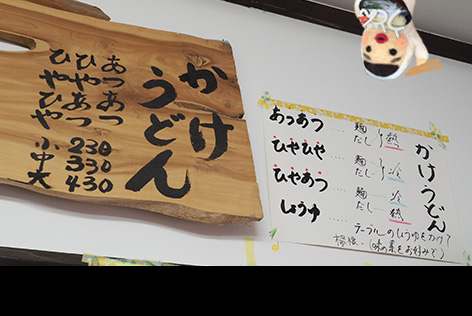 かけ
うどん
あつあつ
ひやあつ
ひやひや
小 230
中 330
大 430
かけうどん
あつあつ …… 麺
だし 熱
ひやひや …… 麺
だし 冷
ひやあつ …… 麺 … 冷
だし … 熱
しょうゆ ……
テーブルのしょうゆをかけて
(味の素をお好みで)